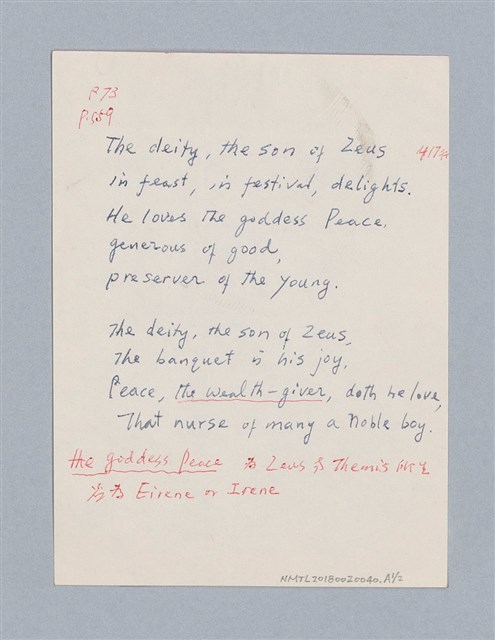 P73
P.559
The deity, the son of Zeus
in feast, in festival, delights.
He loves the goddess Peace,
generous of good,
preserver of the young.
The deity, the son of Zeus,
The banquet is his joy,
Peace, the wealth-giver, doth he love,
That nurse of many a Noble boy.
the goddess Peace 為 Zeus Themis 所生
為 Eirene or Irene
NMTL20180020040.A1/2